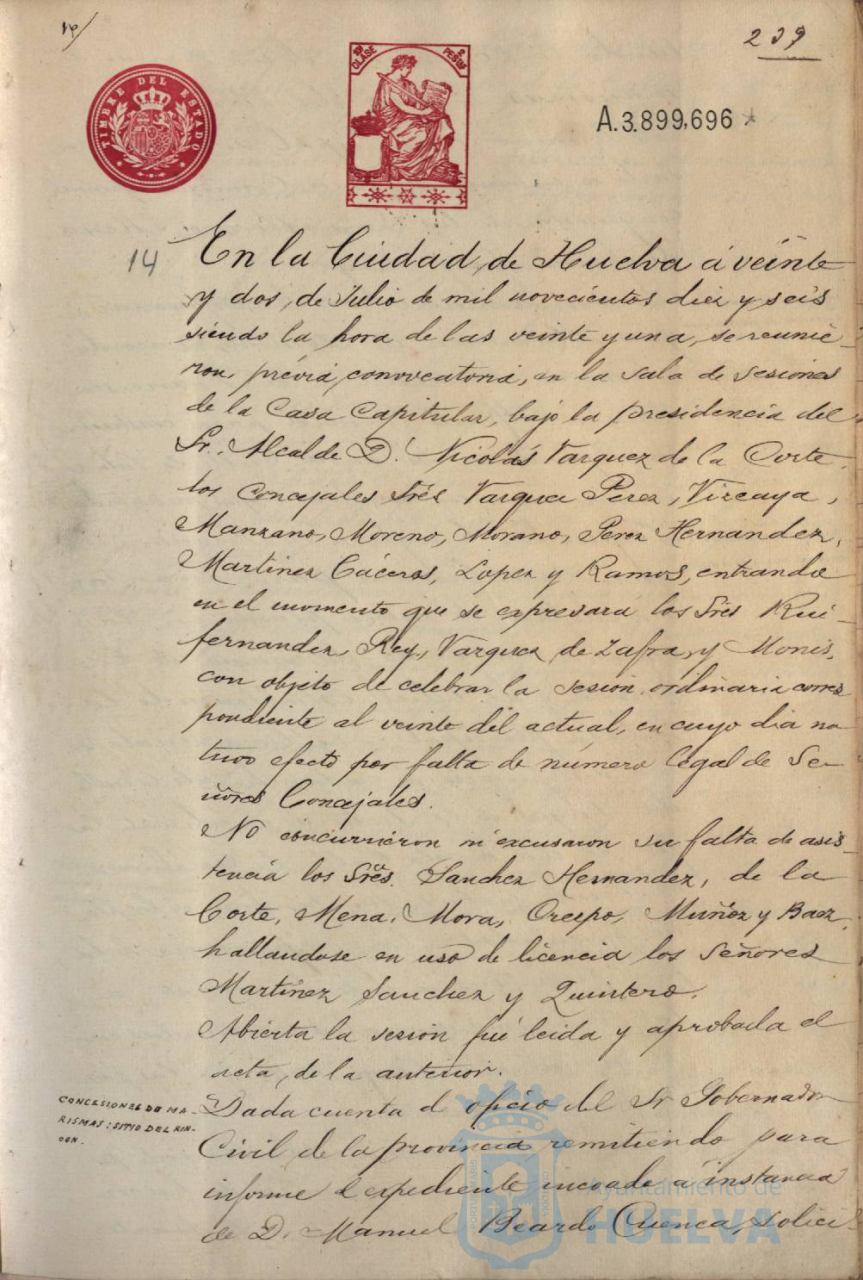 239
TIMBRE DEL ESTADO
CLASE
PESETAS
A.3.899,696
14
En la Ciudad de Huelva á veinte
y dos, de Julio de mil novecientos diez y seis
siendo la hora de las veinte y una, se reunie-
ron, prévia convocatoria, en la sala de sesiones
de la Casa Capitular, bajo la presidencia del
Sr. Alcalde D. Nicolás Vazquez de la Corte,
los concejales Srés Vazquez Perez, Vizcaya,
Manzano, Moreno, Morano, Perez Hernandez,
Martinez Cáceres, Lopez y Ramos, entrando
en el momento que se expresará los Srés Rui-
fernandez, Rey, Vazquez de Zafra, y Monis,
con objeto de celebrar la sesion ordinaria corres
pondiente al veinte del actual, en cuyo dia no
tuvo efecto por falta de número legal de Se-
ñores Concejales.
No concurrieron ni escusaron su falta de asis-
tencia los Srēs. Sanchez Hernandez, de la
Corte, Mena, Mora, Crespo, Muñoz y Baez,
hallandose en uso de licencia los Señores
Martinez Sanchez y Quintero.
Abierta la sesion fué leida y aprobada el
acta, de la anterior.
CONCESIONES DE MA-
RISMAS: SITIO DEL RIN-
CON.
Dada cuenta d oficio del Sr Gobernador
Civil de la provincia remitiendo para
informe el expediente incoado á instancia
de D. Manuel Beardo Cuenca, solici
Ayuntamiento de
HUELVA